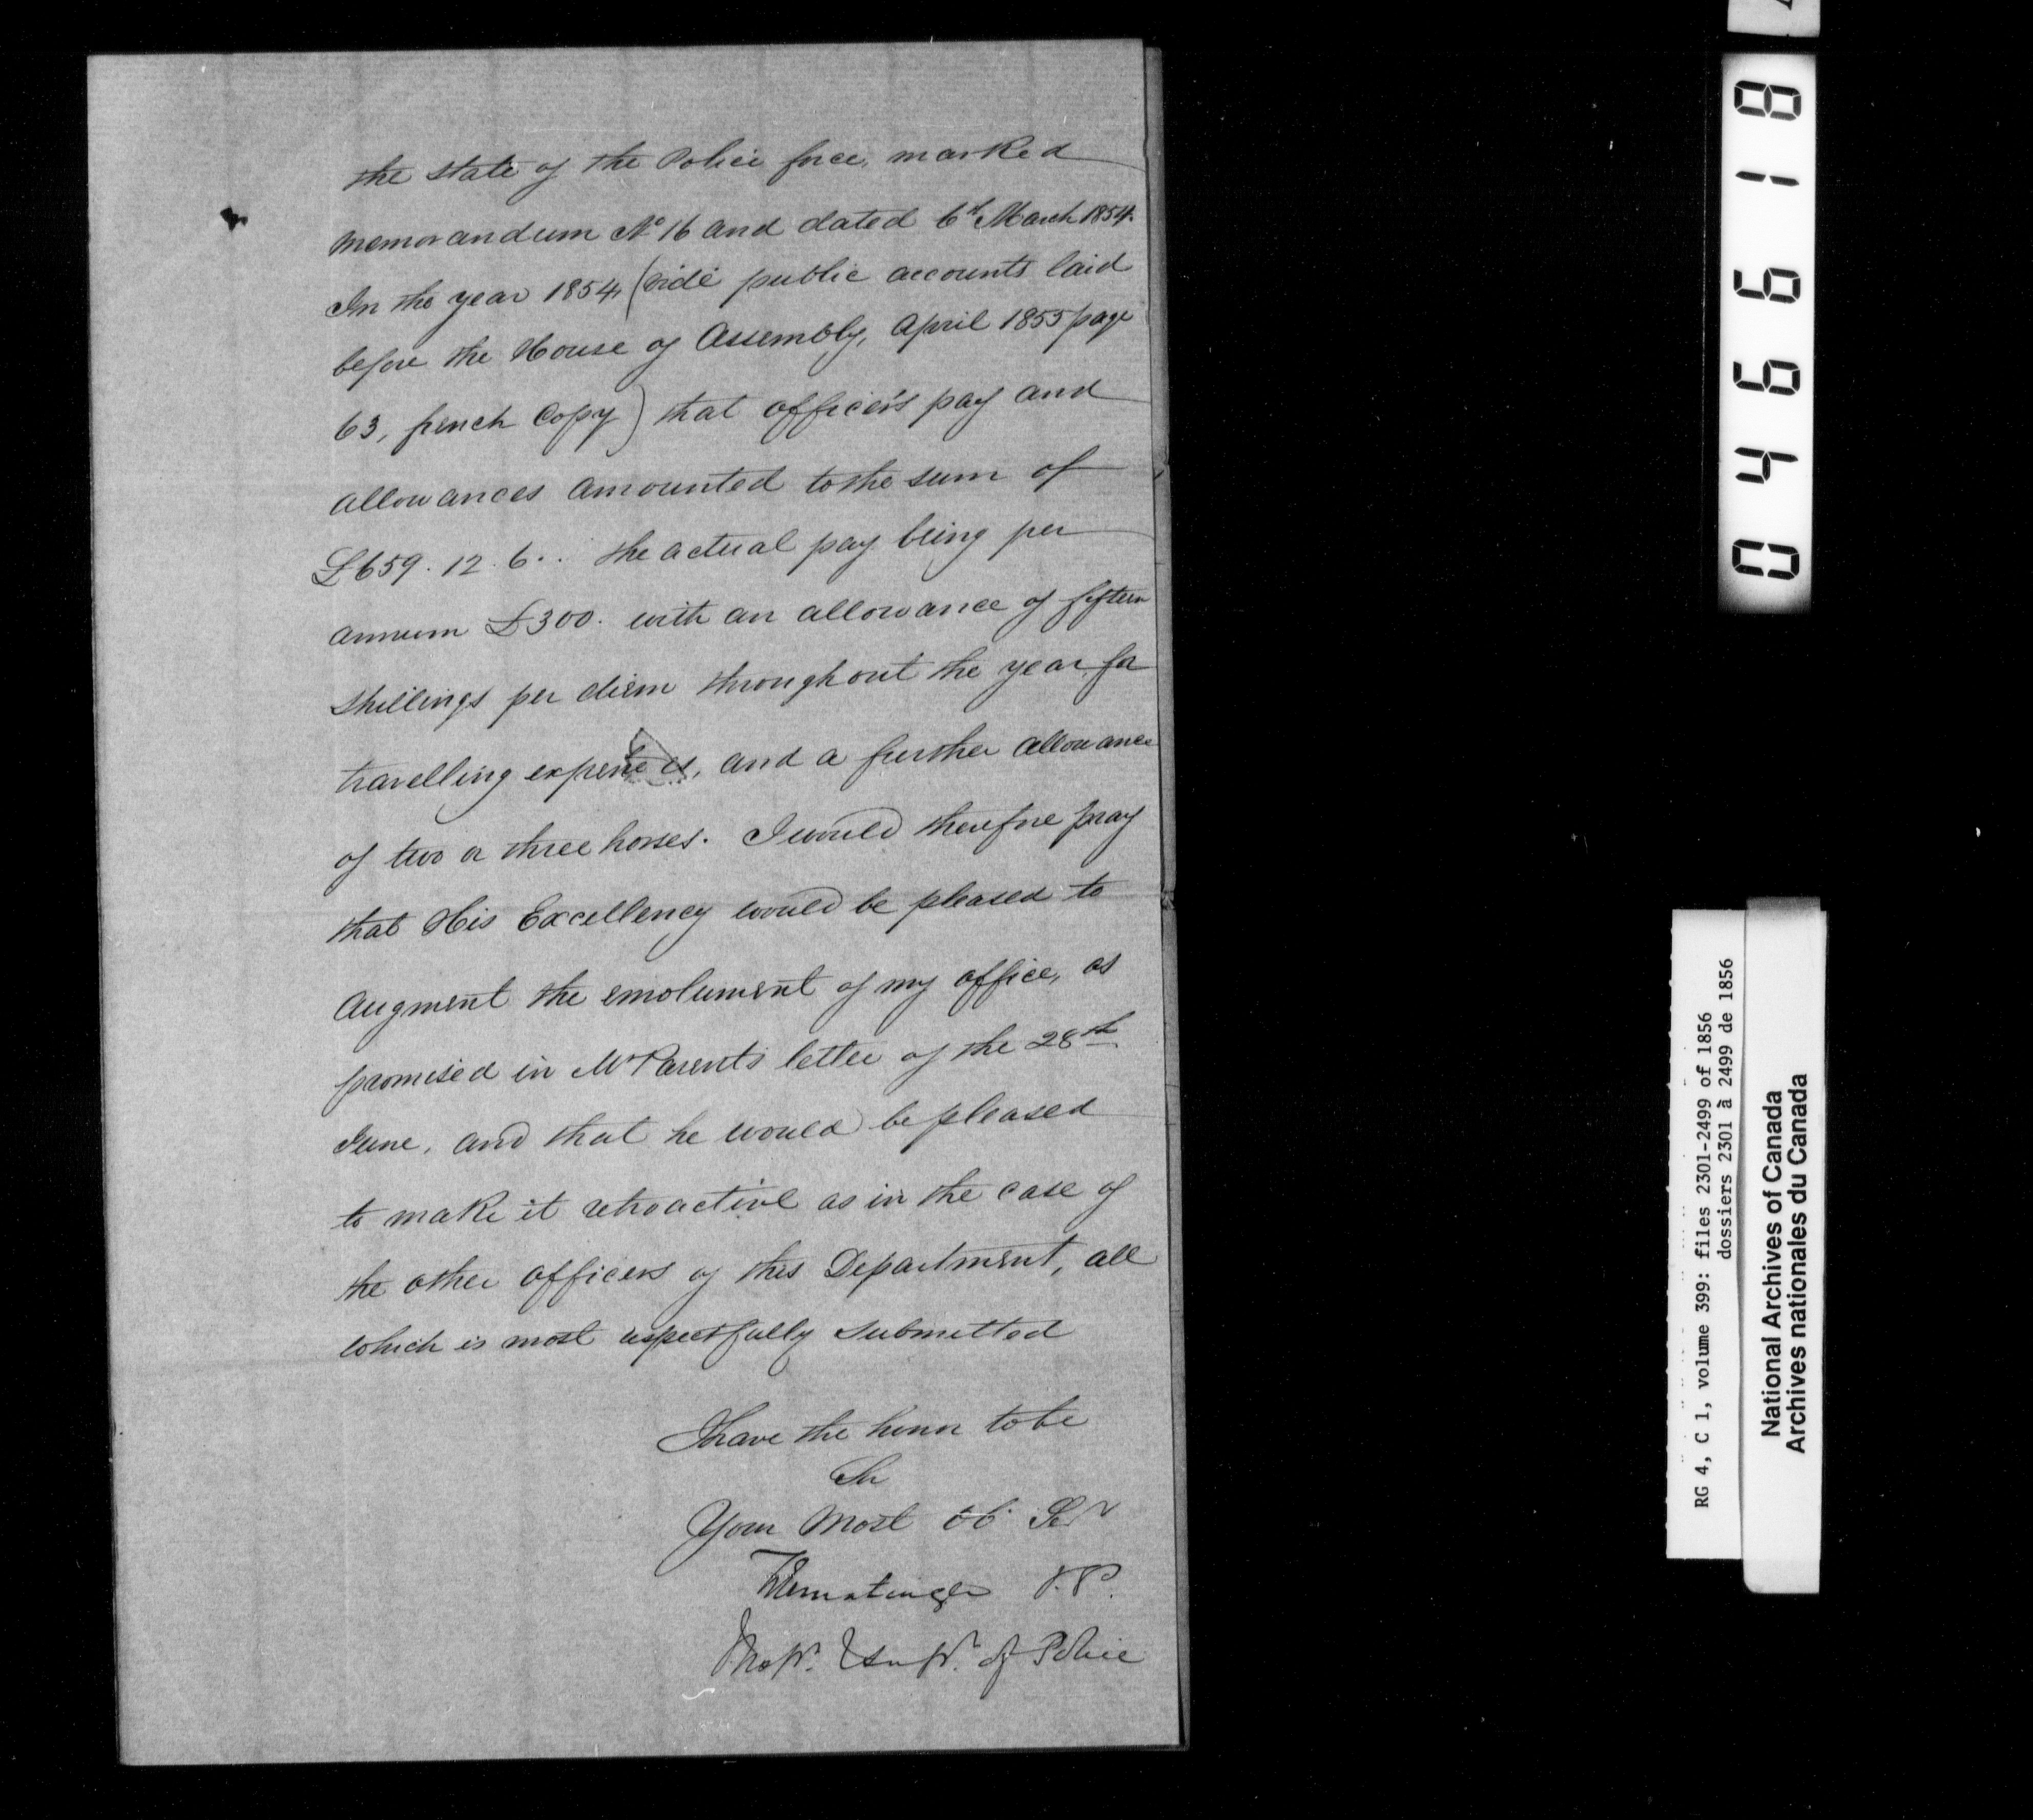 the state of the Police force, marked
memorandum No 16 and dated 6th March 1854.
In the year 1854, (vide public accounts laid
before the House of Assembly, April 1855 page
63, french Copy) that officer's pay and
allowances amounted to the sum of
£659. 12. 6.. the actual pay being per
annum £300. with an allowance of fifteen
shillings per diem throughout the year for
travelling expenses, and a further allowance
of two or three horses. I would therefore pray
that His Excellency would be pleased to
augment the emolument of my office, as
promised in Mr Parent's letter of the 28th
June, and that he would be pleased
to make it retroactive as in the case of
the other officers of this Department, all
which is most respectfully submitted
I have the honor to be
Sir
Your most ob. Ser
Ermatinger J.P.
of Police
04661 8
RG 4, C 1, volume 399: files 2301-2499 of 1856
dossiers 2301 à 2499 de 1856
National Archives of Canada
Archives nationales du Canada